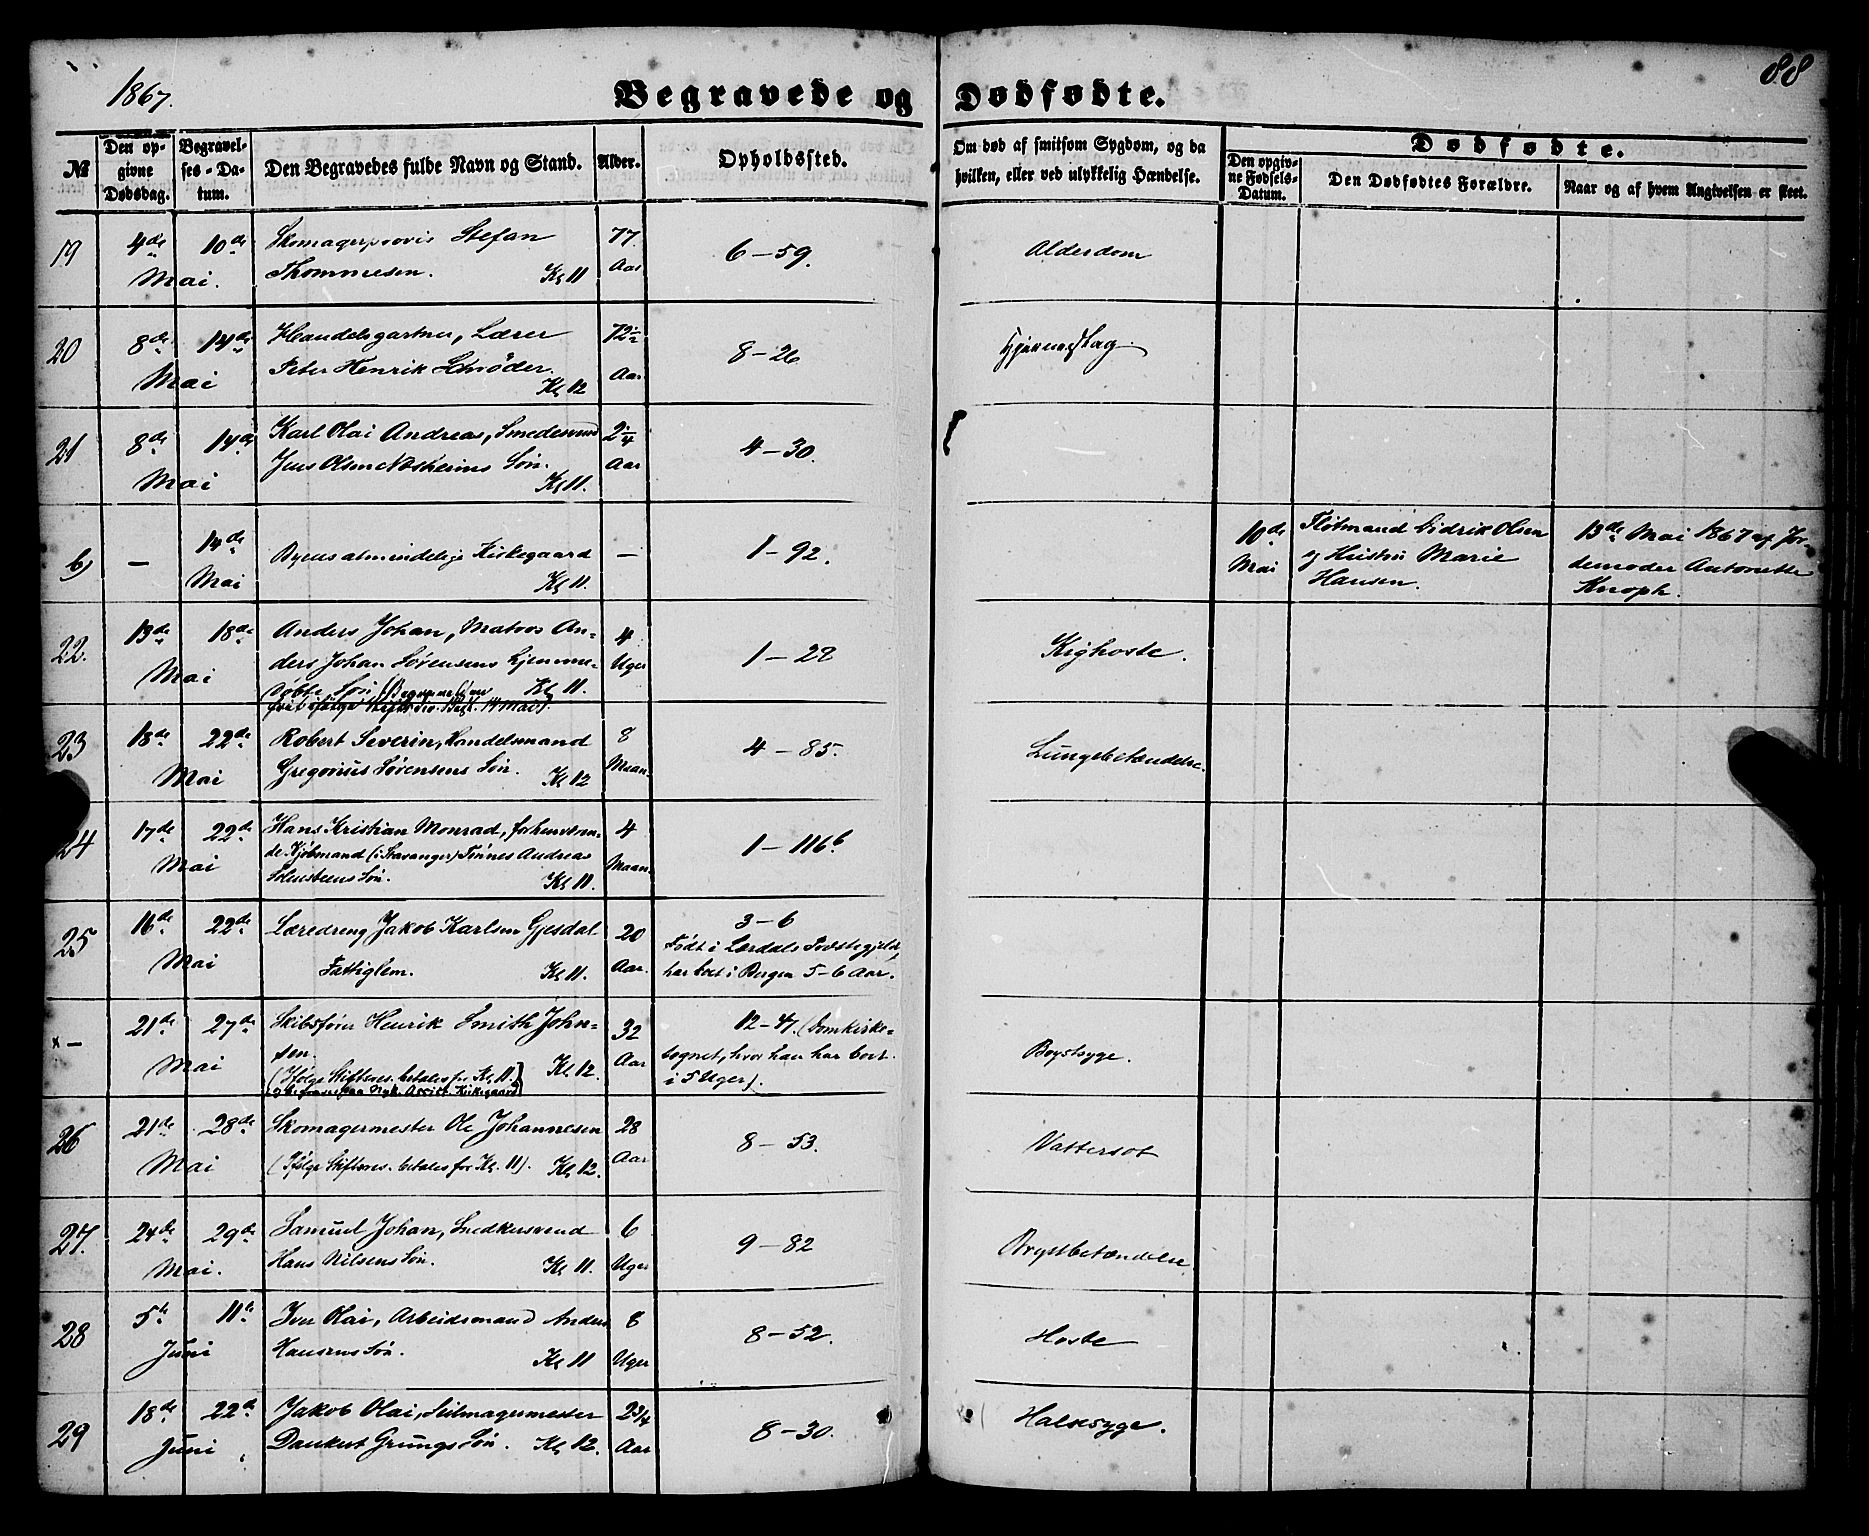 1867.
Begravede og Dødfødte.
88
№
Den opgivne Dødsdag.
Begravelses-Datum.
Den Begravedes fulde Navn og Stand.
Alder.
Opholdssted.
Om død af smitsom Sygdom, og da hvilken, eller ved ulykkelig Hændelse.
Dødfødte.
Den opgivne Fødsels-Datum.
Den Dødfødtes Forældre.
Naar og af hvem Angivelsen er skeet.
19 4de 10de Skomagerprovis Stefan 77 6-59. Alderdom
Mai. Thommesen. Kl 11 Aar
20 8de 14de Handelsgartner, Lærer 72½ 8-26 Hjerneslag.
Mai Peter Henrik Schrøder. Kl 12 Aar
21 8de 14de Karl Olai Andreas, Smedesvend 2¼ 4-30.
Mai Jens Olsen Søn. Kl 11. Aar
6) - 14de Mai Byens almindelige Kirkegaard Kl 11. - 1-92.
10de Mai Flotmand Didrik Olsen
og Hustru Marie
Hansen.
13de Mai 1867 af Jor-
demoder Antonette
Knoph.
22. 13de 18de Anders Johan, Matros An- 4 1-22 Kighoste.
Mai ders Johan Sørensens hjemme- Uger
døbte Søn (Begravelsen Kl 11.
frit ifølge Stiftsres. Besl. 14 Mai).
23 18de 22de Robert Severin, Handelsmand 8 4-85. Lungebetændelse.
Mai Gregorius Sørensens Søn. Kl 12 Maan.
24 17de 22de Hans Kristian Monrad, forhenværen- 4 1-116b
Mai de Kjøbmand (i Stavanger) Tønnes Andreas Maan.
Søn. Kl 11.
25 16de 22de Læredreng Jakob Karlsen Gjesdal 20 3-6
Mai Fattiglem. Kl 11. Aar.
Født i Lærdals Præstegjeld,
har boet i Bergen 5-6 Aar.
x- 21de 27de Skibsfører Henrik Smith John- 32 12-47. (Domkirke-
Mai sen. Kl 12. Aar sognet, hvor han har boet
i 5 Uger).
Brystsyge.
(Ifølge Stiftsres. betales for Kl. 11.
og begraves paa Nyk. Assist. Kirkegaard)
26 21de 28de Skomagermester Ole Johannesen 28 8-53. Nattersot
Mai (Ifølge Stiftsres. betales for Kl. 11). Kl 12. Aar
27. 24de 29de Samuel Johan, Snedkersvend 6 9-82 Brystbetændelse.
Mai. Hans Nilsens Søn. Kl 11. Uger
28 5te 11te Iver Olai, Arbeidsmand Anders 8 8-52. Hoste
Juni Hansens Søn. Kl 11 Uger
29 18de 22de Jakob Olai, Seilmagermester 2¾ 8-30. Halssyge.
Juni Dankert Grungs Søn. Kl 12. Aar